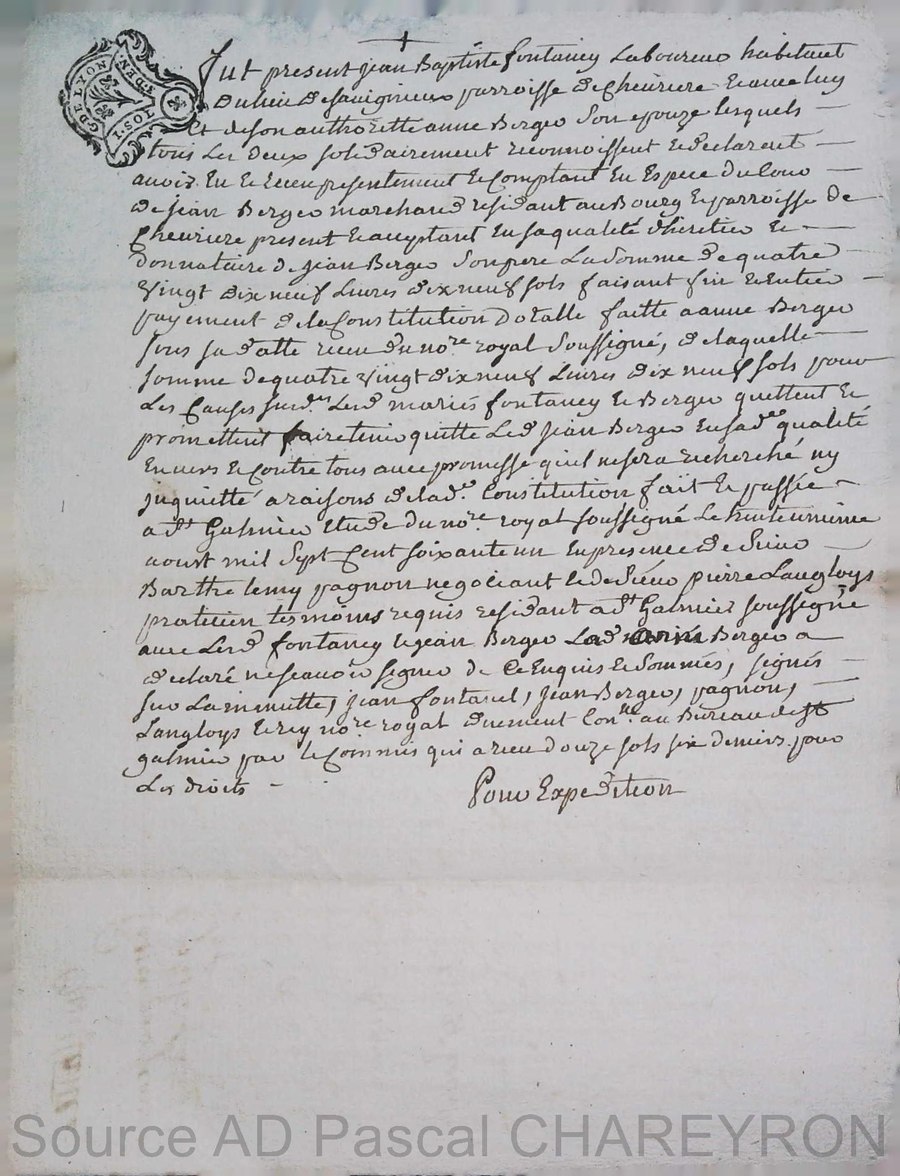 G. DE LYON
DEN.
I. SOL
Fut present jean Baptiste fontaney Laboureur habitant
Du lieu De savignieux parroisse de Cheuriere Et avec luy
Et de son authorette anne Berger son epouze lesquels
tous Les deux solidairement reconnoissent Et declarent
avoir Eu Et receu presentement Et Comptant En Espece du Cour
de jean Berger marchand residant au Bourg Et parroisse de
Cheuriere present Et acceptant En sa qualité d'heretier Et
donnataire de jean Berger son pere La somme De quatre
vingt dix neuf Livres dix neuf sols faisant fin Et Entier
payement de la Constitution Dotalle faitte a anne Berger
sous sa datte receu du no.re royal soussigné, de laquelle
somme de quatre vingt dix neuf Livres dix neuf sols pour
Les Causes susd.es Lesd. mariés fontaney Et Berger quittent Et
promettent faire tenir quitte Led. jean Berger En sad. qualité
Envers Et Contre tous avec promesse qu'il ne sera recherché ny
inquietté a raisons de lad. Constitution fait Et passée
a st Galmier Etude du no.re royal soussigné Le trente unieme
aoust mil sept Cent soixante un En presence de sieur
Barthelemy pagnon negociant Et de sieur pierre Langloys
praticien tesmoins requis residant a st Galmier soussigné
avec Led. fontaney Et jean Berger Lad. Berger a
declaré ne scavoir signer de Ce Enquis Et Sommés, signés
sur La minutte, jean fontanel, jean Berger, pagnon,
Langloys Et rey no.re royal duement Con.llé au Bureau de st
galmier par le Commis qui a receu douze sols six deniers pour
Les droits
Pour Expedition
Source AD Pascal CHAREYRON